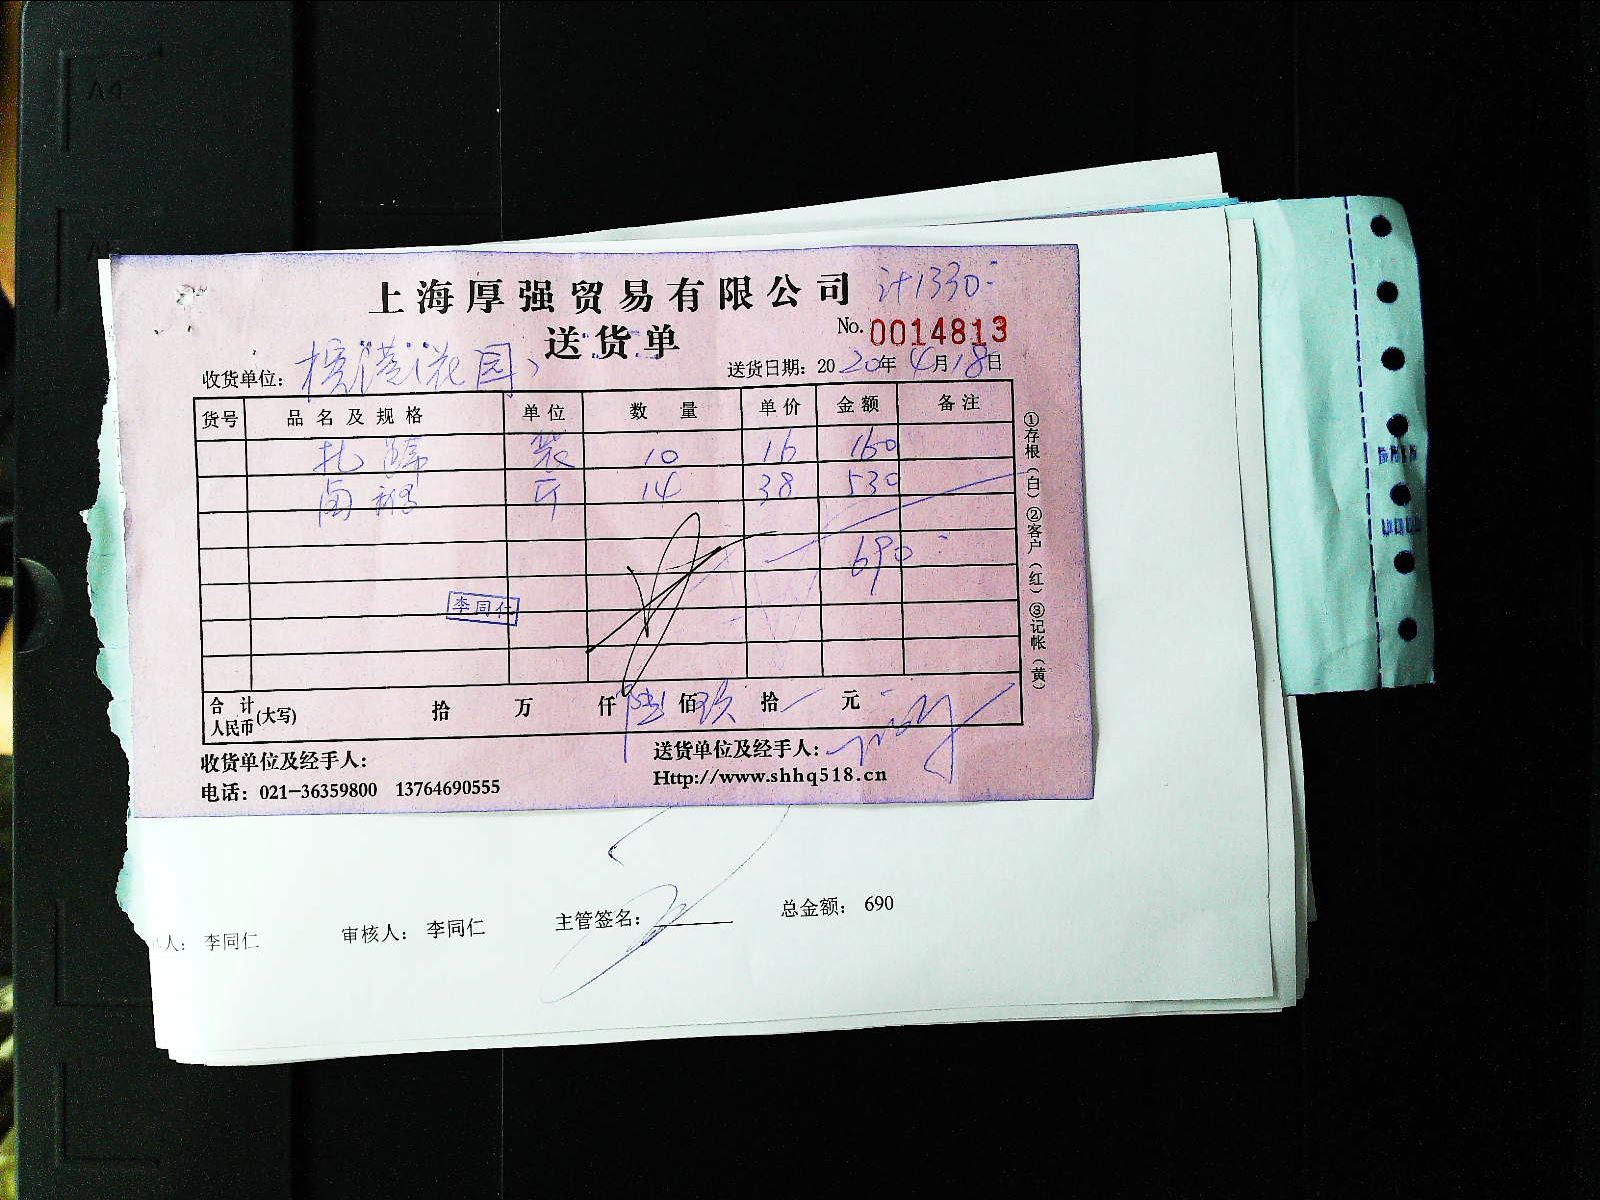 上海厚强贸易有限公司 计1330.-
送货单 No. 0014813
收货单位： 送货日期：2020年4月18日
货号 品名及规格 单位 数量 单价 金额 备注
扎蹄 袋 10 16 160
斤 14 38 530
690.-
李同仁
合计人民币(大写) 拾 万 仟 陆 佰 玖 拾 元
收货单位及经手人： 送货单位及经手人：
电话：021-36359800 13764690555 Http://www.shhq518.cn
①存根（白）②客户（红）③记帐（黄）
人： 李同仁 审核人： 李同仁 主管签名： 总金额： 690
A4